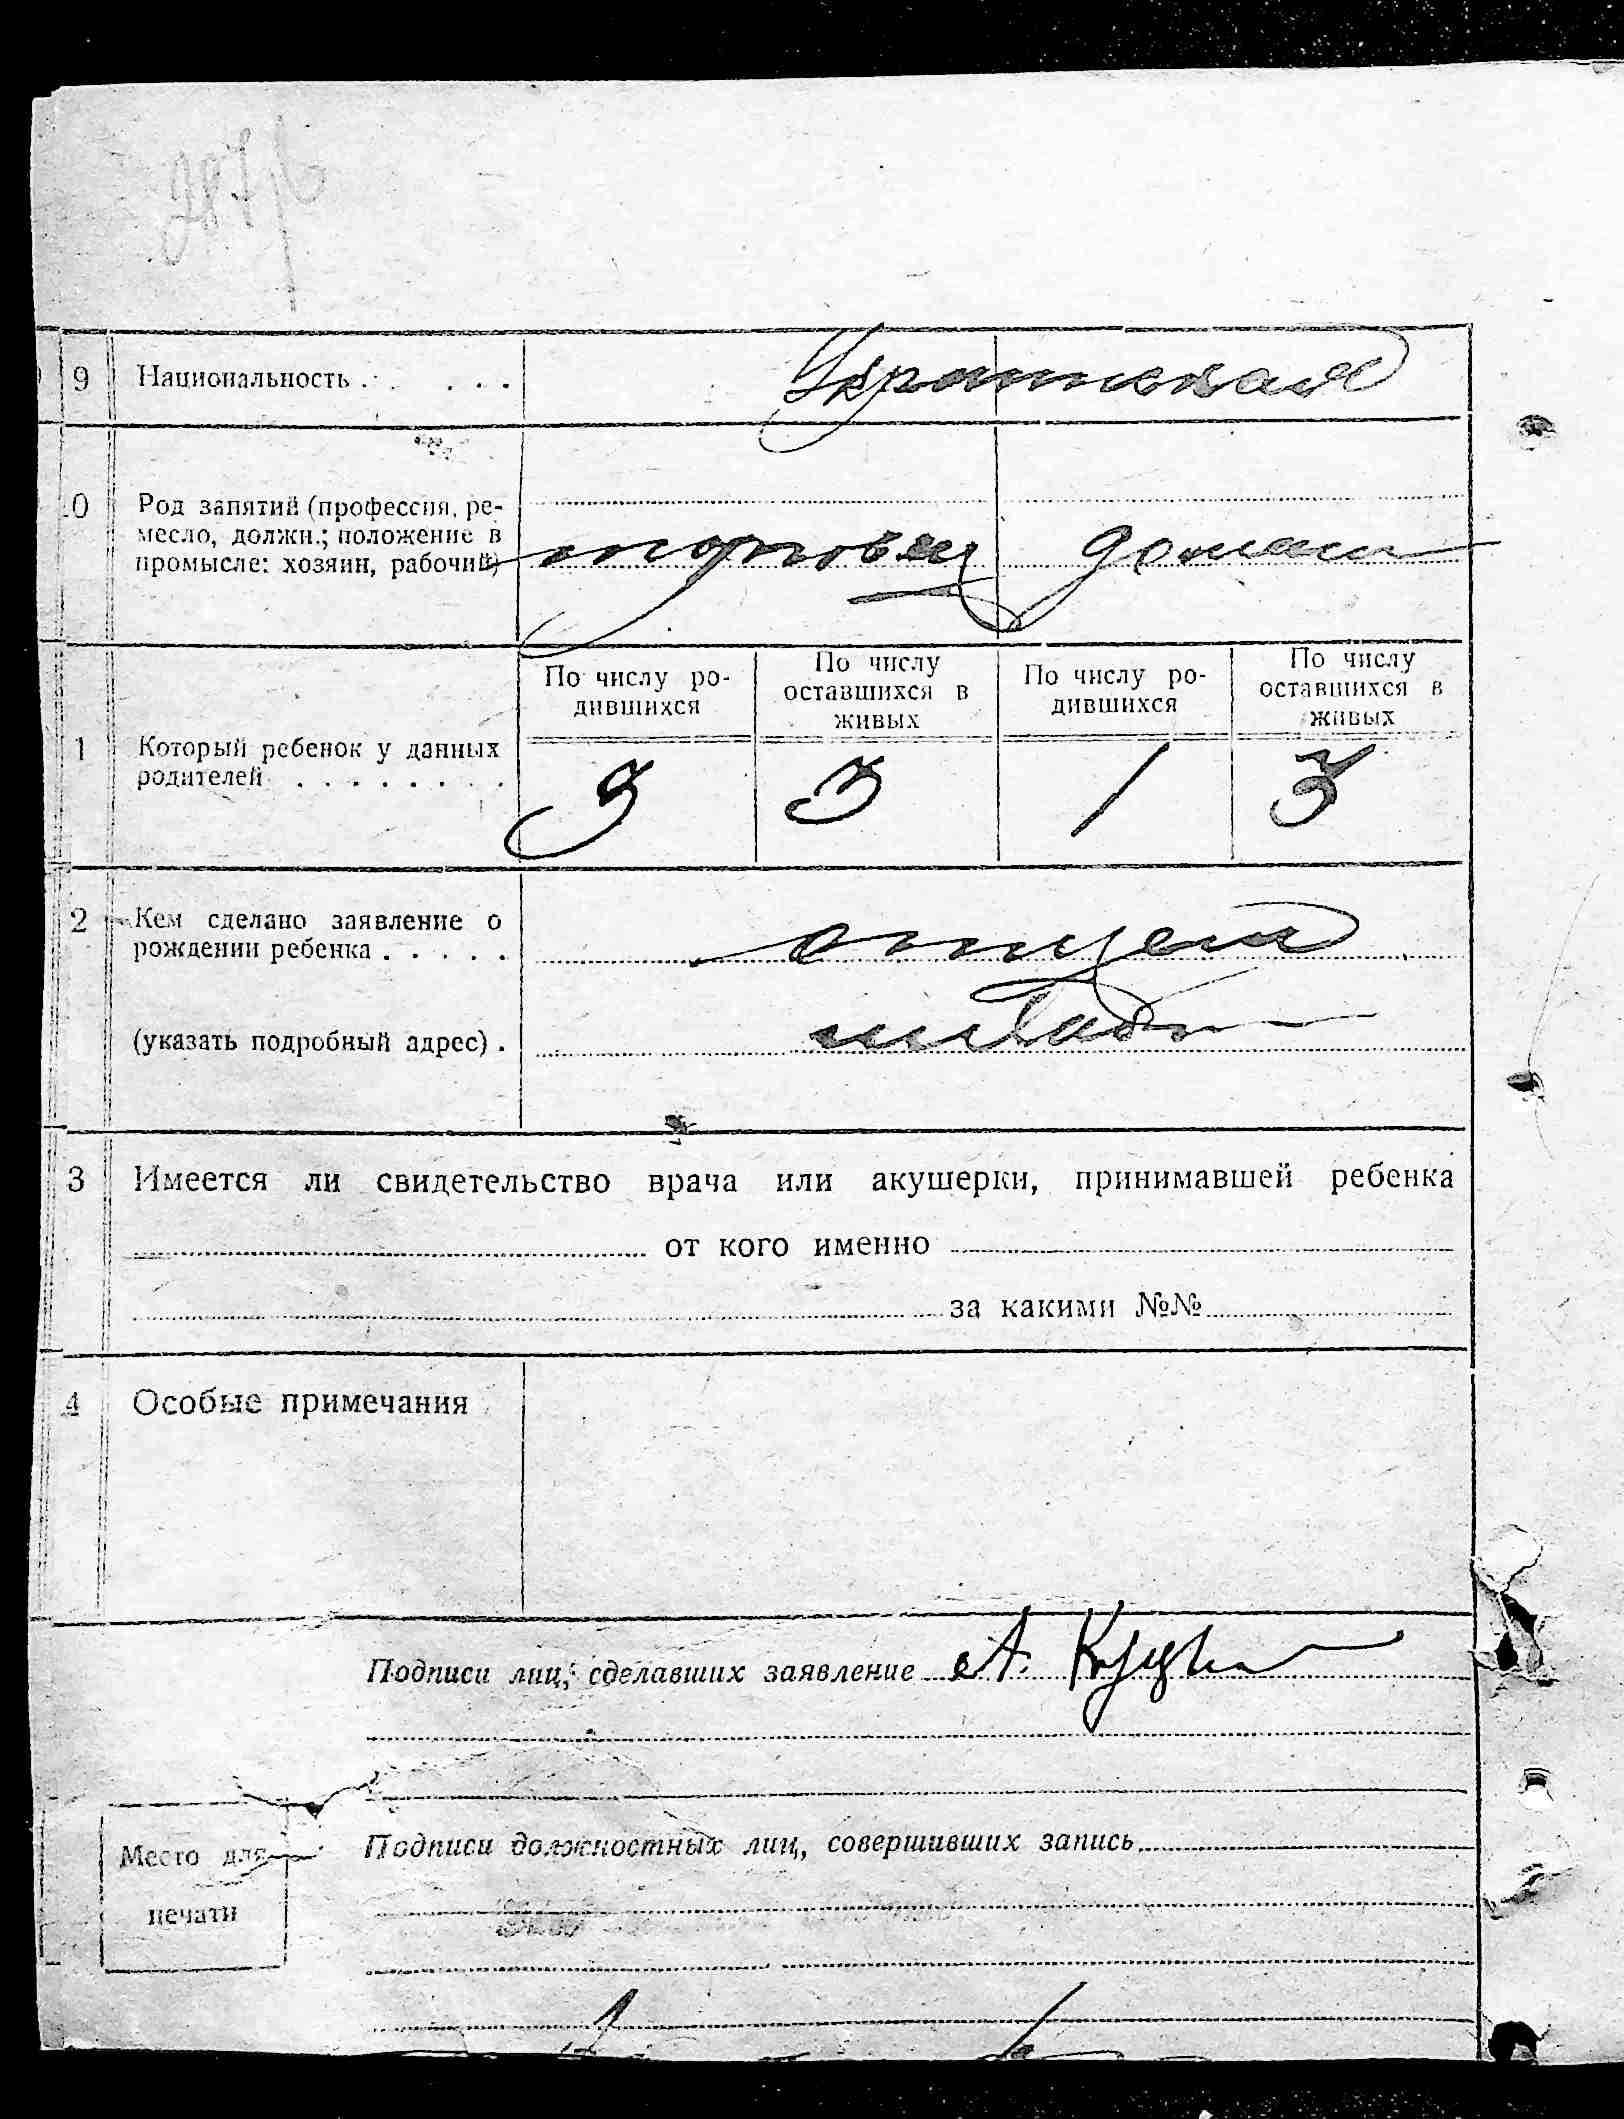 9 Национальность . . . . . Украинская
0 Род занятий (профессия, ре-
месло, должн.; положение в
промысле: хозяин, рабочий)
торговец домаш
По числу ро-
дившихся
По числу
оставшихся в
живых
По числу ро-
дившихся
По числу
оставшихся в
живых
1 Который ребенок у данных
родителей . . . . . . . .
3 3 / 3
2 Кем сделано заявление о
рождении ребенка . . . . . отцем
(указать подробный адрес) .
3 Имеется ли свидетельство врача или акушерки, принимавшей ребенка
от кого именно
за какими №№
4 Особые примечания
Подписи лиц, сделавших заявление А.
Подписи должностных лиц, совершивших запись
Место для
печати